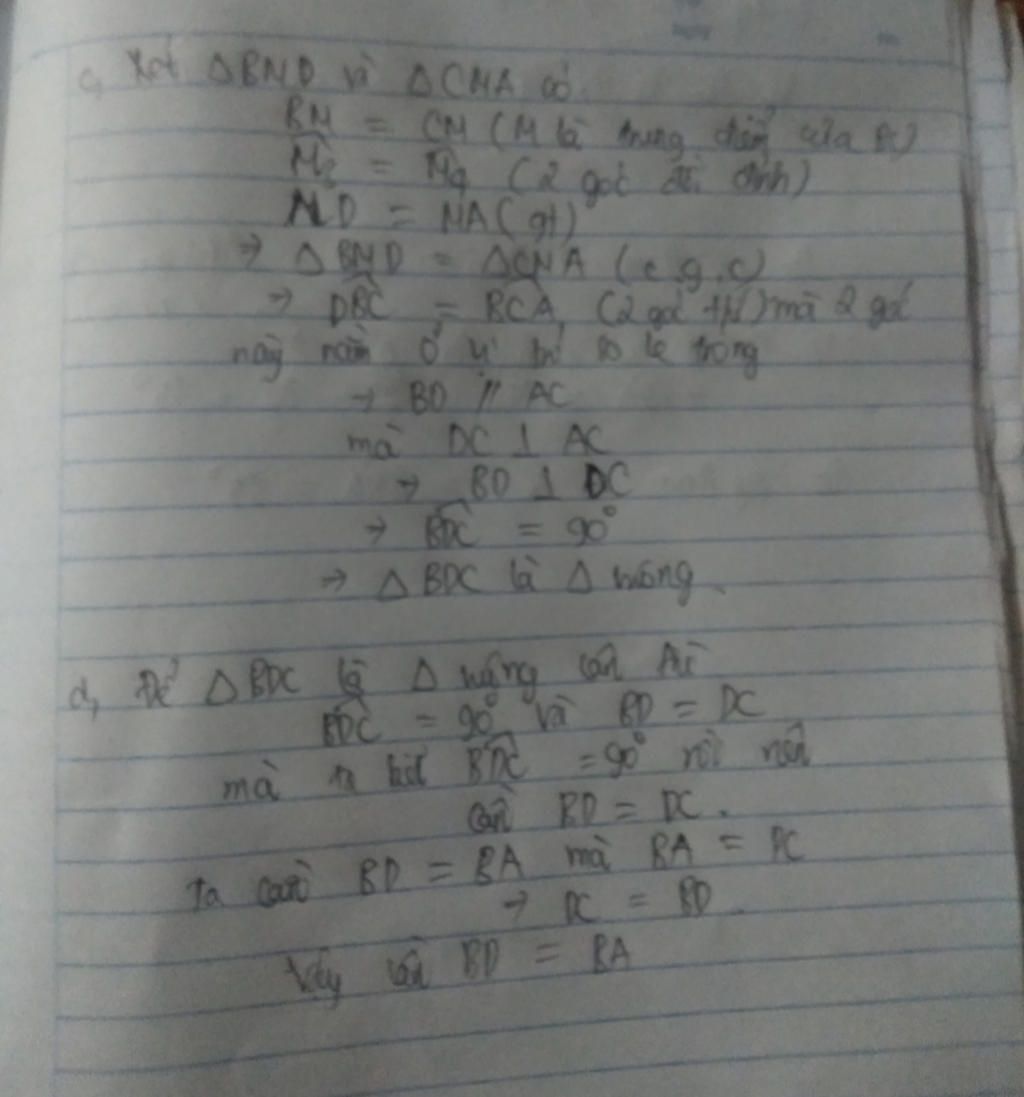 c, Xét △BMD và △CMA có
BM = CM (M là trung điểm của BC)
M̂₂ = M̂₄ (2 góc đối đỉnh)
MD = MA (gt)
→ △BMD = △CMA (c.g.c)
→ DBC = BCA (2 góc t/ứ) mà 2 góc
này nằm ở vị trí so le trong
→ BD // AC
mà DC ⊥ AC
→ BD ⊥ DC
→ BDC = 90°
→ △ BDC là △ vuông
d, Để △ BDC là △ vuông cân thì
BDC = 90° và BD = DC
mà ta biết BDC = 90° rồi nên
cần BD = DC.
Ta cần BD = BA mà BA = DC
→ DC = BD
Vậy cần BD = BA